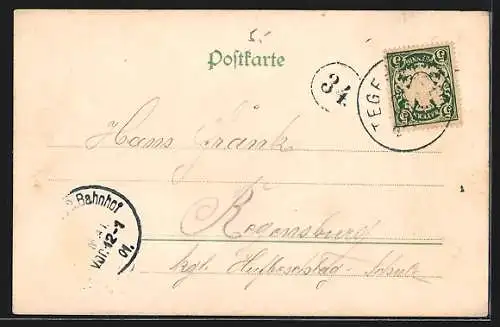 Postkarte
34
TEGE
Hans Fränk
Bahnhof
VOR 12-1
01.
Regensburg
kgl. Hufbeschlag-Schule